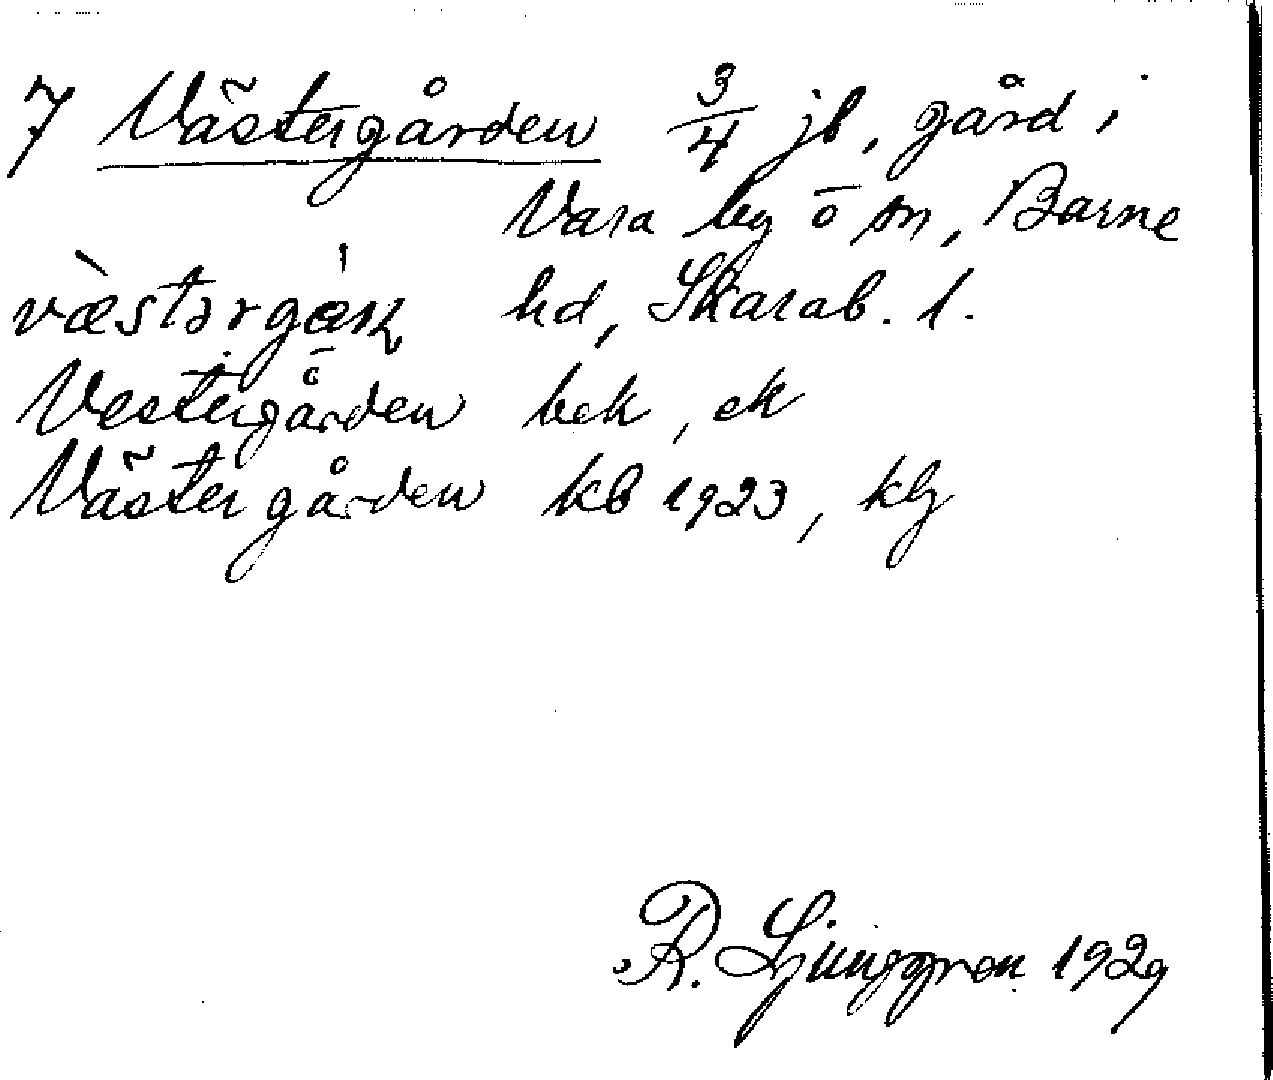 7 Västergården 3/4 jb, gård i
Vara by o sn, Barne
hd, Skarab. l.
Vestergården bek, ek
Västergården kb 1923, klj
R. Ljunggren 1929